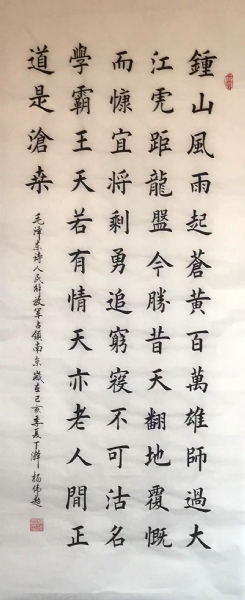 鍾山風雨起蒼黄百萬雄師過大
江虎距龍盤今勝昔天翻地覆慨
而慷宜将剩勇追窮寇不可沽名
學霸王天若有情天亦老人間正
道是滄桒
毛澤东詩人民解放軍占領南京 歲在己亥季夏丁 楊偉超